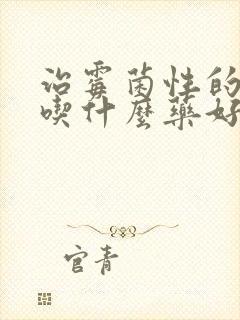 治霉菌性的
喫什麼藥好
官青